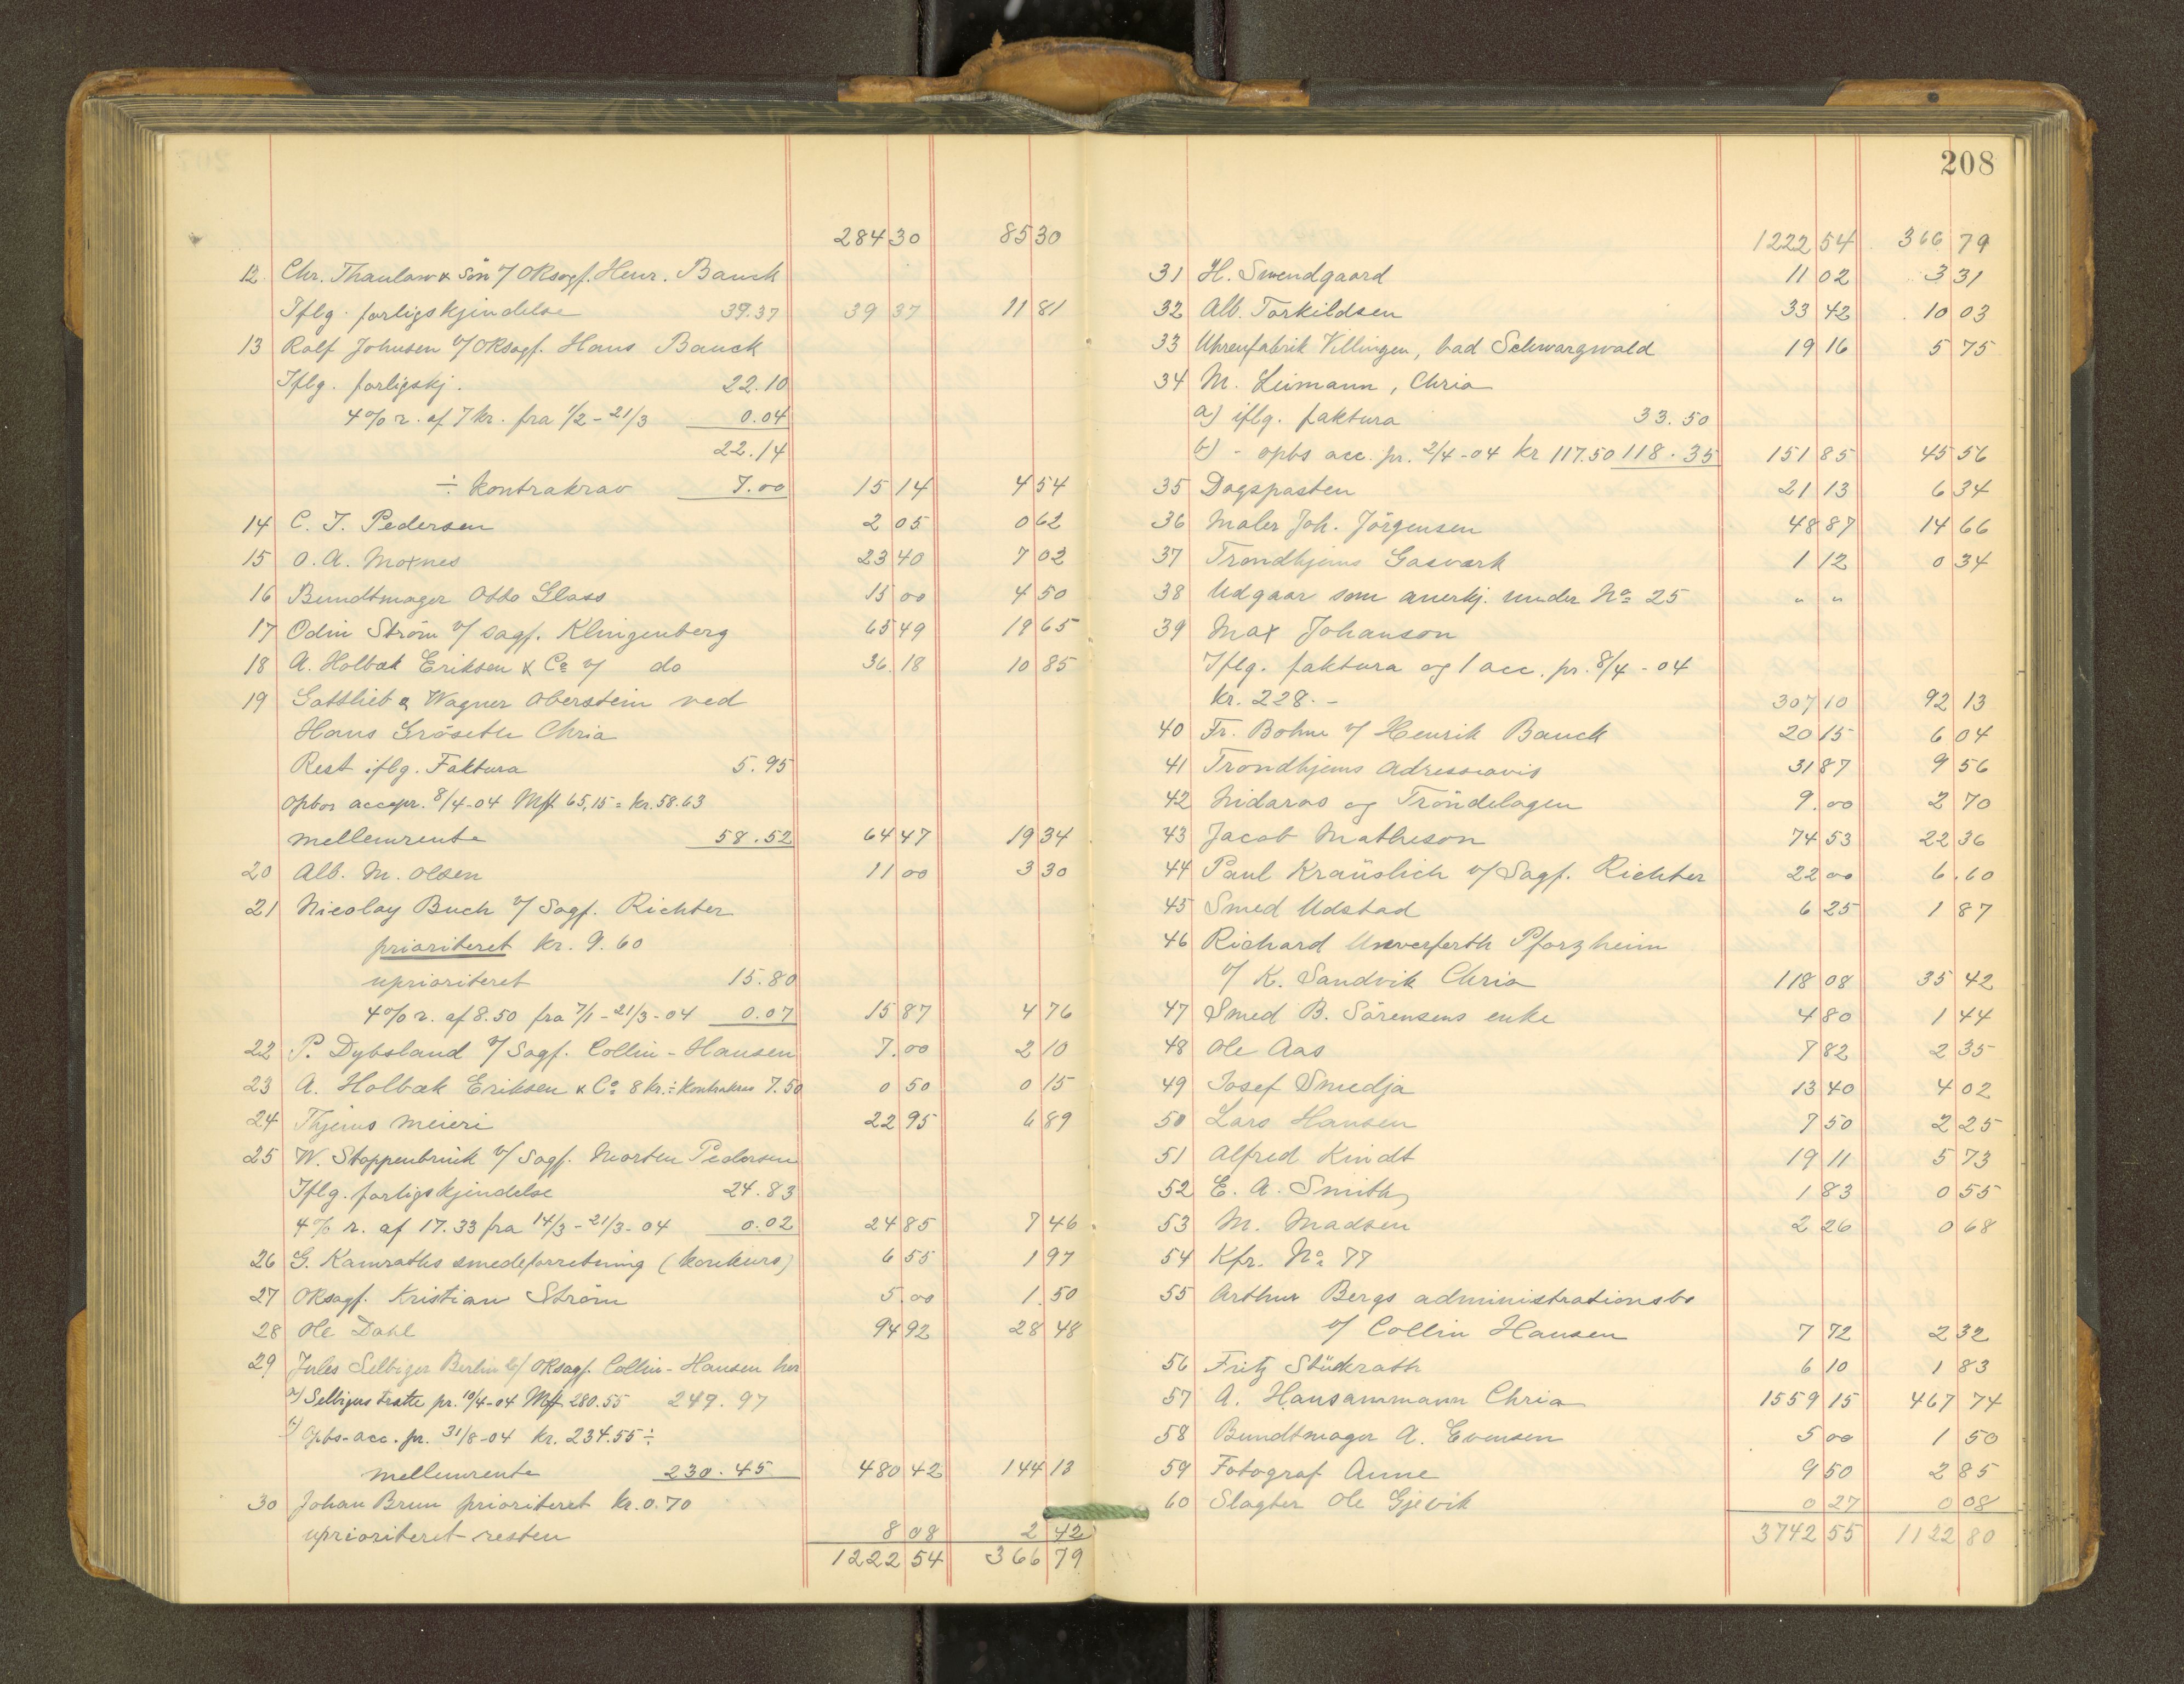 284 30 85 30
12 Chr. Thaulow & Sön v/ ORsagf. Henr. Bauck
Iflg. forligskjendelse 39.37 39 37 11 81
13 Rolf Johnsen v/ ORsagf. Hans Bauck
Iflg. forligskj. 22.10
4% r. af 7 kr. fra 1/2 - 21/3 0.04
22.14
÷ kontrakrav 7.00 15 14 4 54
14 C. J. Pedersen 2 05 0 62
15 O. A. Moxnes 23 40 7 02
16 Bundtmager Otto 15 00 4 50
17 Odin Ström v/ sagf. Klingenberg 65 49 19 65
18 A. Holbæk Eriksen & Co v/ do 36.18 10 85
19 Gottlieb & Wagner Oberstein ved
Hans Gröseth Chria
Rest iflg. Faktura 5.95
opbor accepr. 8/4-04 Mk 65,15 = kr. 58.63
mellemrente 58.52 64 47 19 34
20 Alb. M. Olsen 11 00 3 30
21 Nicolay Buch v/ Sagf. Richter
prioriteret kr. 9.60
uprioriteret 15.80
4% r. af 8.50 fra 7/1 - 21/3-04 0.07 15 87 4 76
22 P. Dybsland v/ Sagf. Collin-Hansen 7.00 2 10
23 A. Holbæk Eriksen & Co 8 kr. ÷ kontrakrav 7.50 0 50 0 15
24 Thjems Meieri 22 95 6 89
25 W. Stoppenbrink v/ Sagf. Morten Pedersen
Iflg. forligskjendelse 24.83
4% r. af 17.33 fra 14/3 - 21/3-04 0.02 24 85 7 46
26 G. Kamraths smedeforretning (konkurs) 6 55 1 97
27 ORsagf. Kristian Ström 5.00 1.50
28 Ole Dahl 94 92 28 48
29 Jules Selbiger Berlin v/ ORsagf. Collin-Hansen her
a) Selbigers tratte pr. 10/4-04 Mk 280.55 249.97
b) Opbs-acc. pr. 31/8-04 kr. 234.55 ÷
mellemrente 230.45 480 42 144 13
30 Johan Brun prioriteret kr. 0.70
uprioriteret resten 8 08 2 42
1222 54 366 79
208
1222 54 366 79
31 H. Svendgaard 11 02 3 31
32 Alb. Torkildsen 33 42 10 03
33 Uhrenfabrik Villingen, bad Schwarzwald 19 16 5 75
34 M. Leimann, Chria
a) iflg. faktura 33.50
b) - opbs acc. pr. 2/4-04 kr 117.50 118.35 151 85 45 56
35 Dagsposten 21 13 6 34
36 Maler Joh. Jörgensen 48 87 14 66
37 Trondhjems Gasverk 1 12 0 34
38 Udgaar som anerkj. under No 25 " "
39 Max Johanson
Iflg. faktura og 1 acc. pr. 8/4-04
kr. 228.- 307 10 92 13
40 Fr. Bohne v/ Henrik Bauck 20 15 6 04
41 Trondhjems Adresseavis 31 87 9 56
42 Nidaros og Tröndelagen 9.00 2 70
43 Jacob Matheson 74 53 22 36
44 Paul Kräuslich v/ Sagf. Richter 22 00 6.60
45 Smed Udstad 6 25 1 87
46 Richard Unverferth Pforzheim
v/ K. Sandvik Chria 118 08 35 42
47 Smed B. Sörensens enke 4 80 1 44
48 Ole Aas 7 82 2 35
49 Josef Smedja 13 40 4 02
50 Lars Hansen 7 50 2 25
51 Alfred Kindt 19 11 5 73
52 E. A. Smith 1 83 0 55
53 M. Madsen 2 26 0 68
54 Kfr. No 77
55 Arthur Bergs administrationsbo
v/ Collin Hansen 7 72 2 32
56 Fritz Stückrath 6 10 1 83
57 A. Hansammann Chria 1559 15 467 74
58 Bundtmager A. Evensen 5 00 1 50
59 Fotograf Aune 9 50 2 85
60 Slagter Ole Gjevik 0 27 0 08
3742 55 1122 80